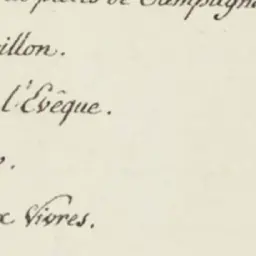 de Campagn
illon.
l'Evêque.
x Vivres.